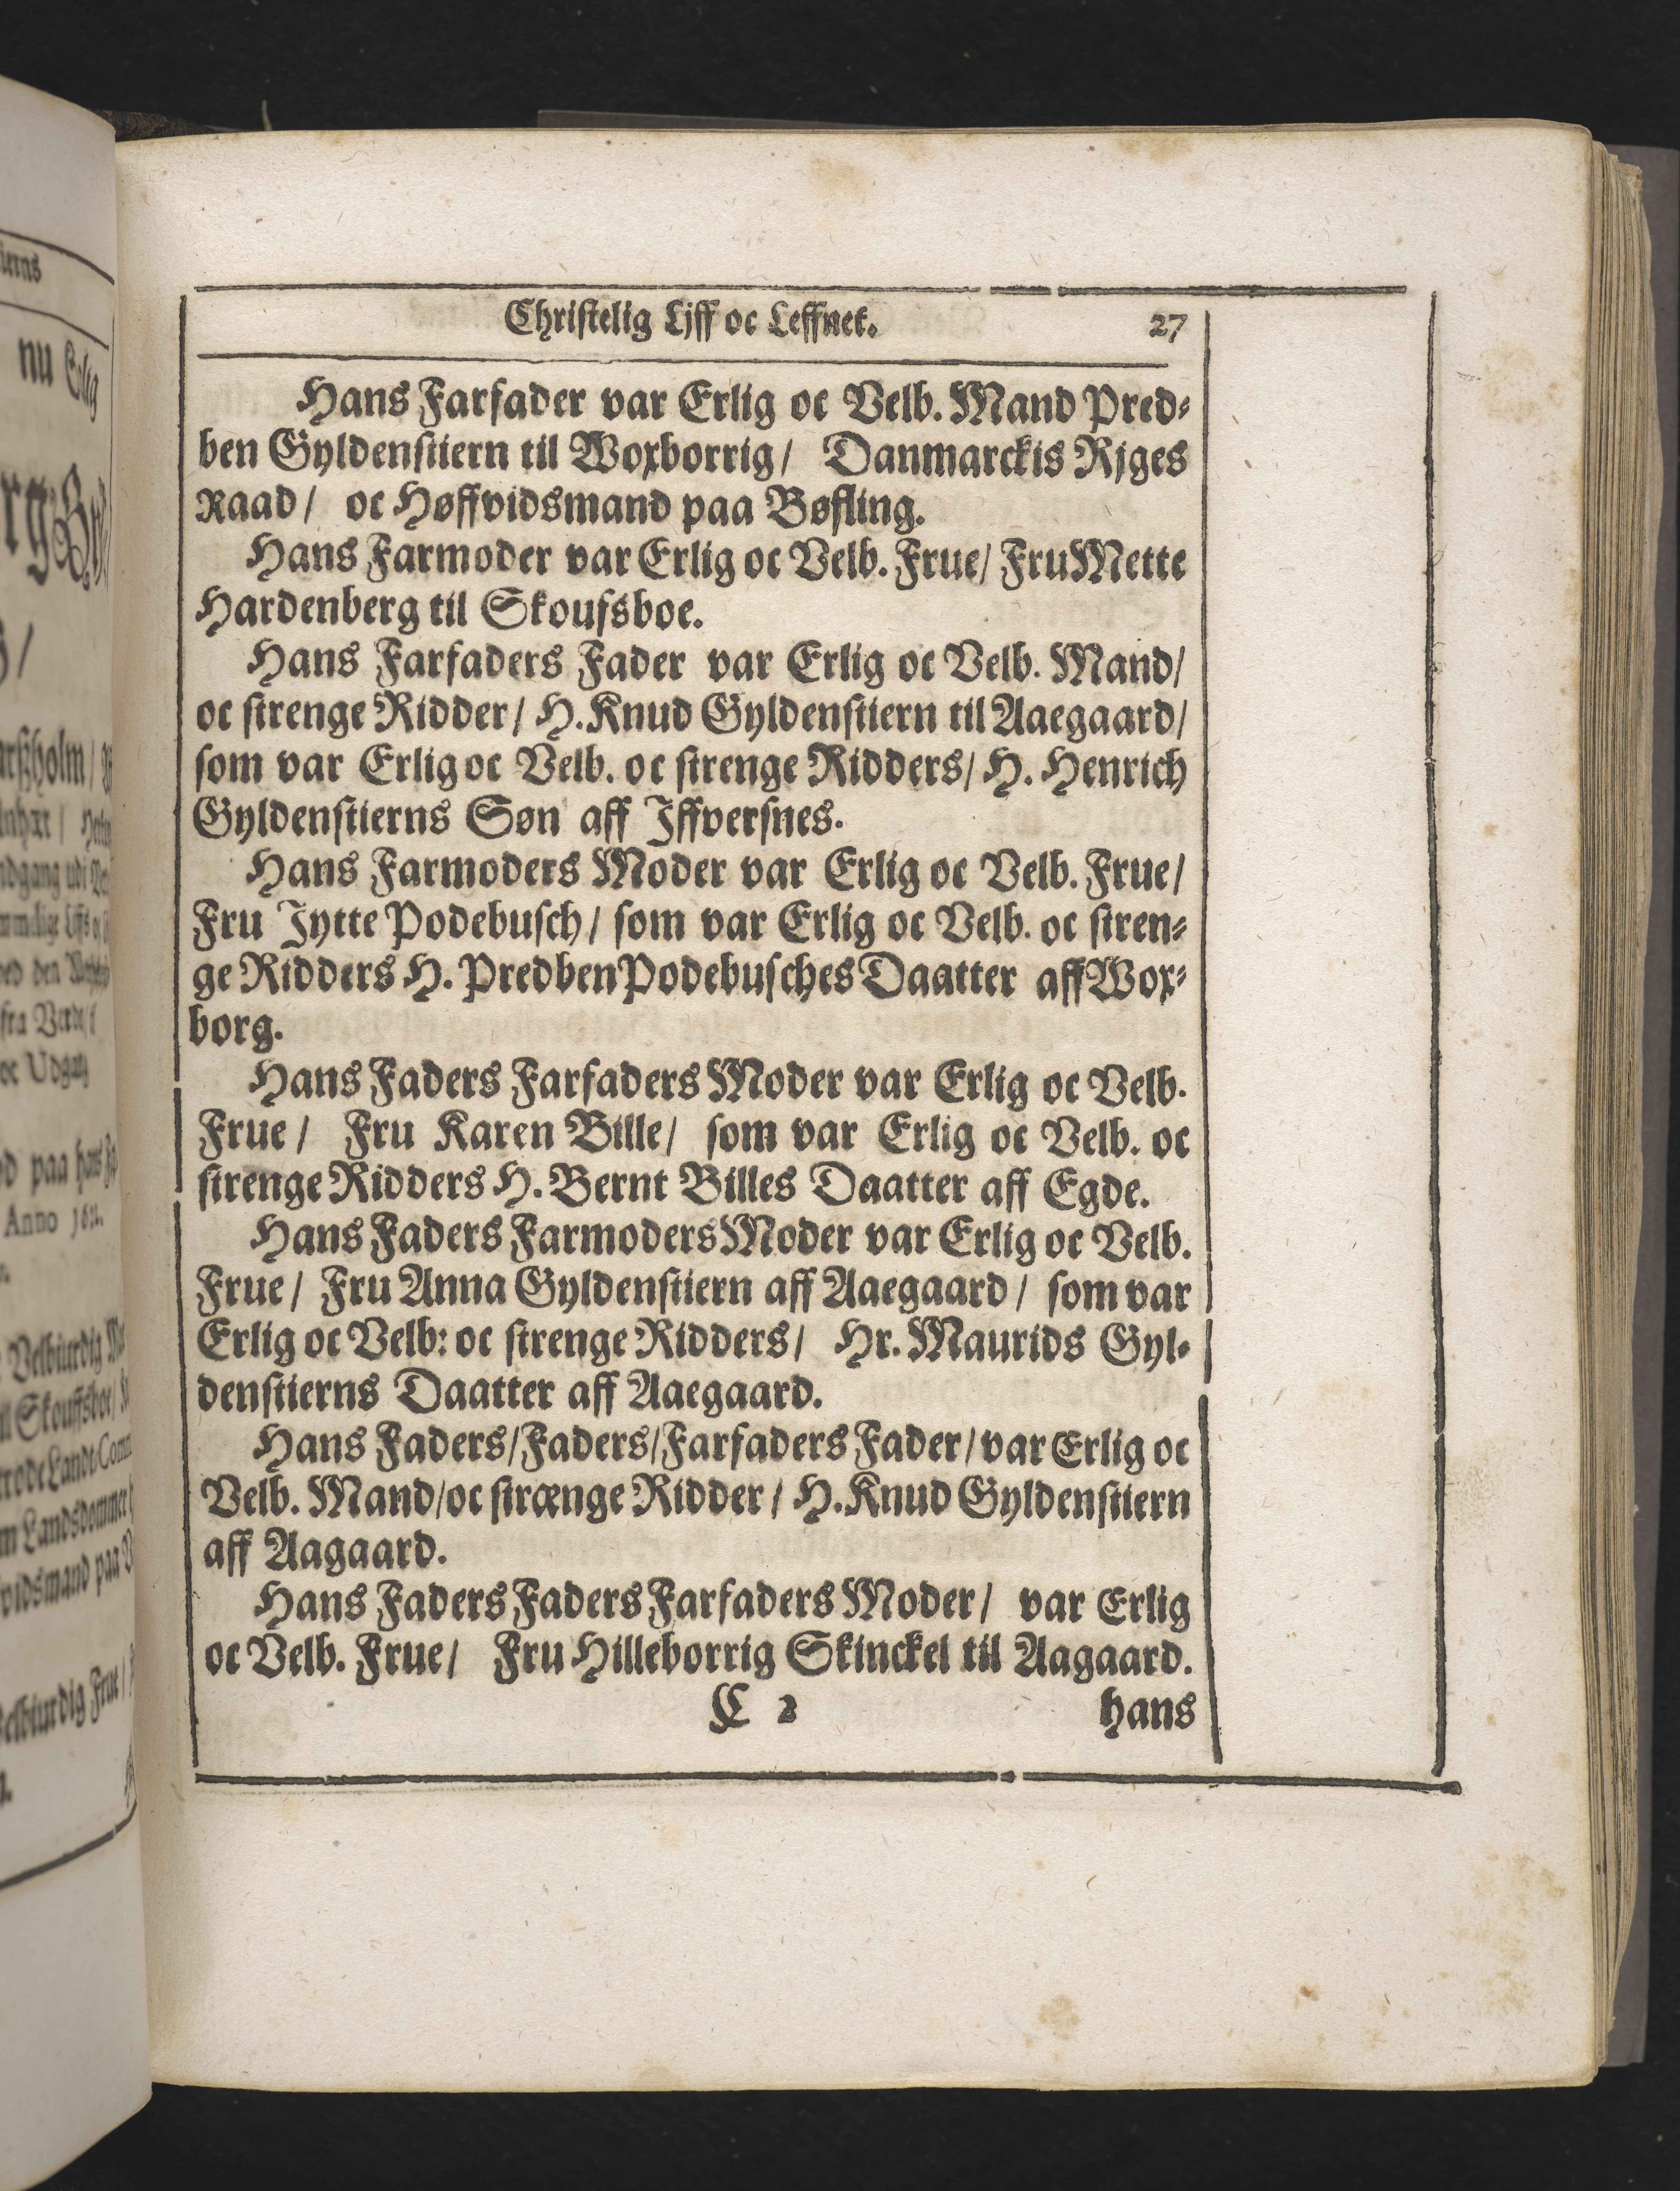 Christelig Ljff oc Leffnet. 27
Hans Farfader var Erlig oc Velb. Mand Pred⸗
ben Gyldenstiern til Woxborrig/ Danmarckis Rjges
Raad/ oc Høffvidsmand paa Bøfling.
Hans Farmoder var Erlig oc Velb. Frue/ Fru Mette
Hardenberg til Skoufsboe.
Hans Farfaders Fader var Erlig oc Velb. Mand/
oc strenge Ridder/ H. Knud Gyldenstiern til Aaegaard/
som var Erlig oc Velb. oc strenge Ridders/ H. Henrich
Gyldenstierns Søn aff Iffversnes.
Hans Farmoders Moder var Erlig oc Velb. Frue/
Fru Jytte Podebusch/ som var Erlig oc Velb. oc stren⸗
ge Ridders H. Predben Podebusches Daatter aff Wox⸗
borg.
Hans Faders Farfaders Moder var Erlig oc Velb.
Frue/ Fru Karen Bille/ som var Erlig oc Velb. oc
strenge Ridders H. Bernt Billes Daatter aff Egde.
Hans Faders Farmoders Moder var Erlig oc Velb.
Frue/ Fru Anna Gyldenstiern aff Aaegaard/ som var
Erlig oc Velb: oc strenge Ridders/ Hr. Maurids Gyl⸗
denstierns Daatter aff Aaegaard.
Hans Faders/Faders/Farfaders Fader/ var Erlig oc
Velb. Mand/oc strænge Ridder/ H. Knud Gyldenstiern
aff Aagaard.
Hans Faders Faders Farfaders Moder/ var Erlig
oc Velb. Frue/ Fru Hilleborrig Skinckel til Aagaard.
C 2 hans